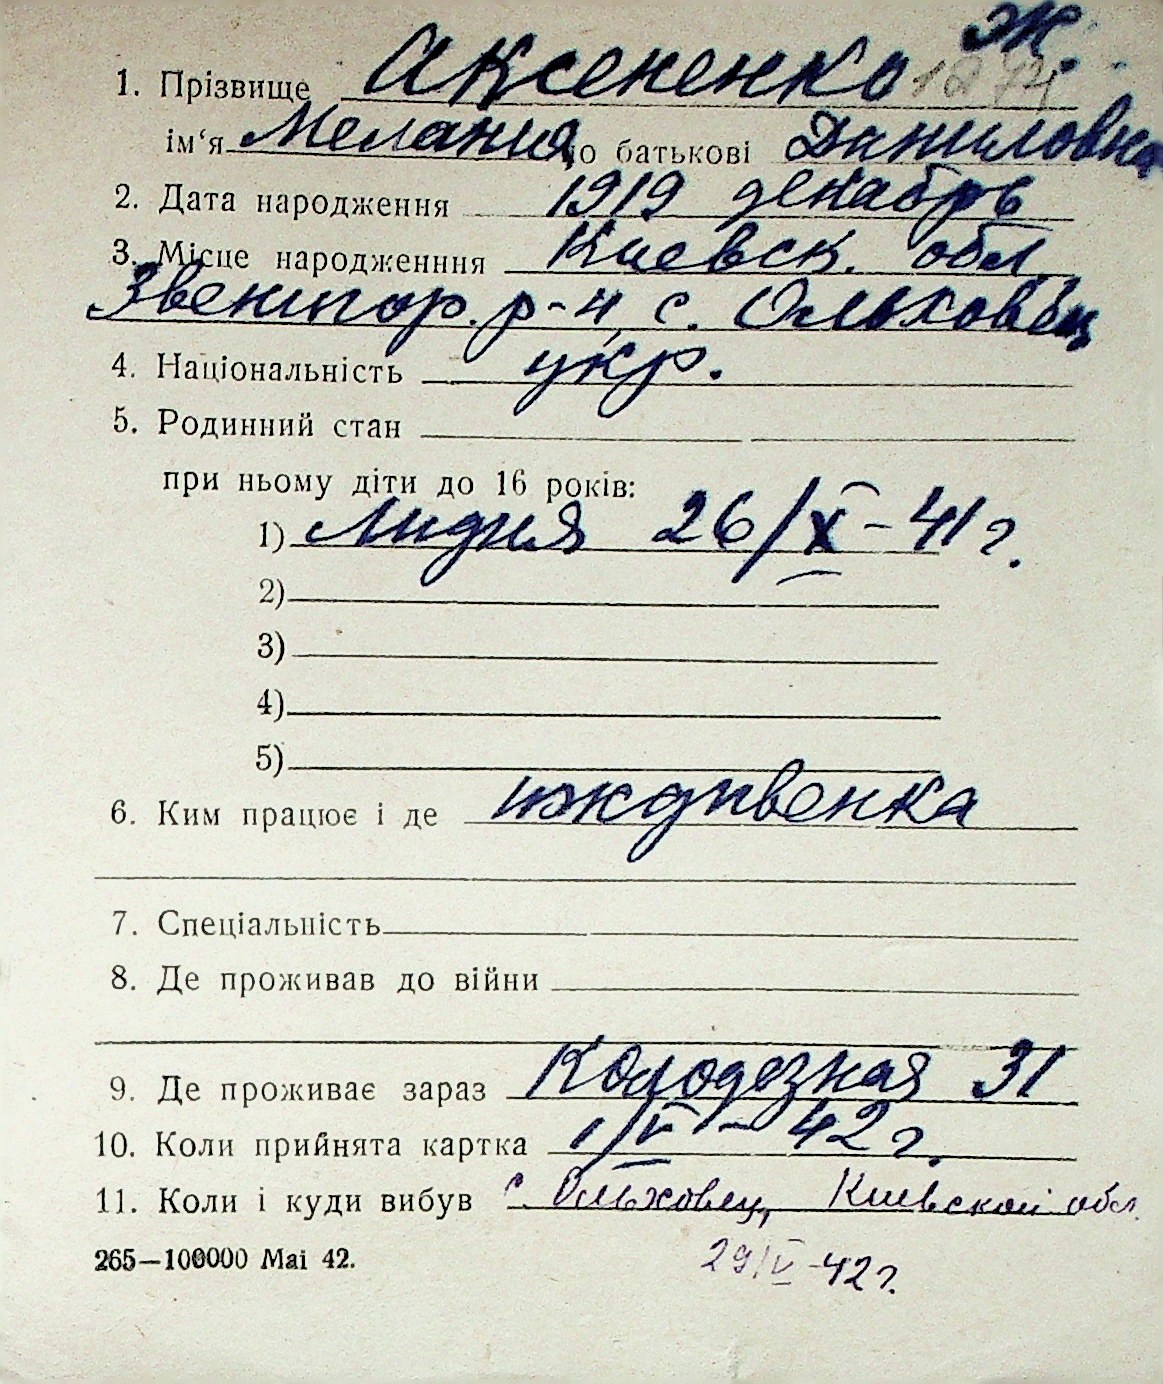 Ж.
1. Прізвище Аксененко
ім‘я Мелания по батькові Даниловна
2. Дата народження 1919 декабрь
3. Місце народженння Киевск. обл.
Звенигор. р-н, с. Ольховец
4. Національність укр.
5. Родинний стан
при ньому діти до 16 років:
1) Лидия 26/X-41 г.
2)
3)
4)
5)
6. Ким працює і де иждивенка
7. Спеціальність
8. Де проживав до війни
9. Де проживає зараз Колодезная 31
10. Коли прийнята картка 1/V-42 г.
11. Коли і куди вибув с. Ольховец, Киевской обл.
265—100000 Mai 42. 29/V-42 г.